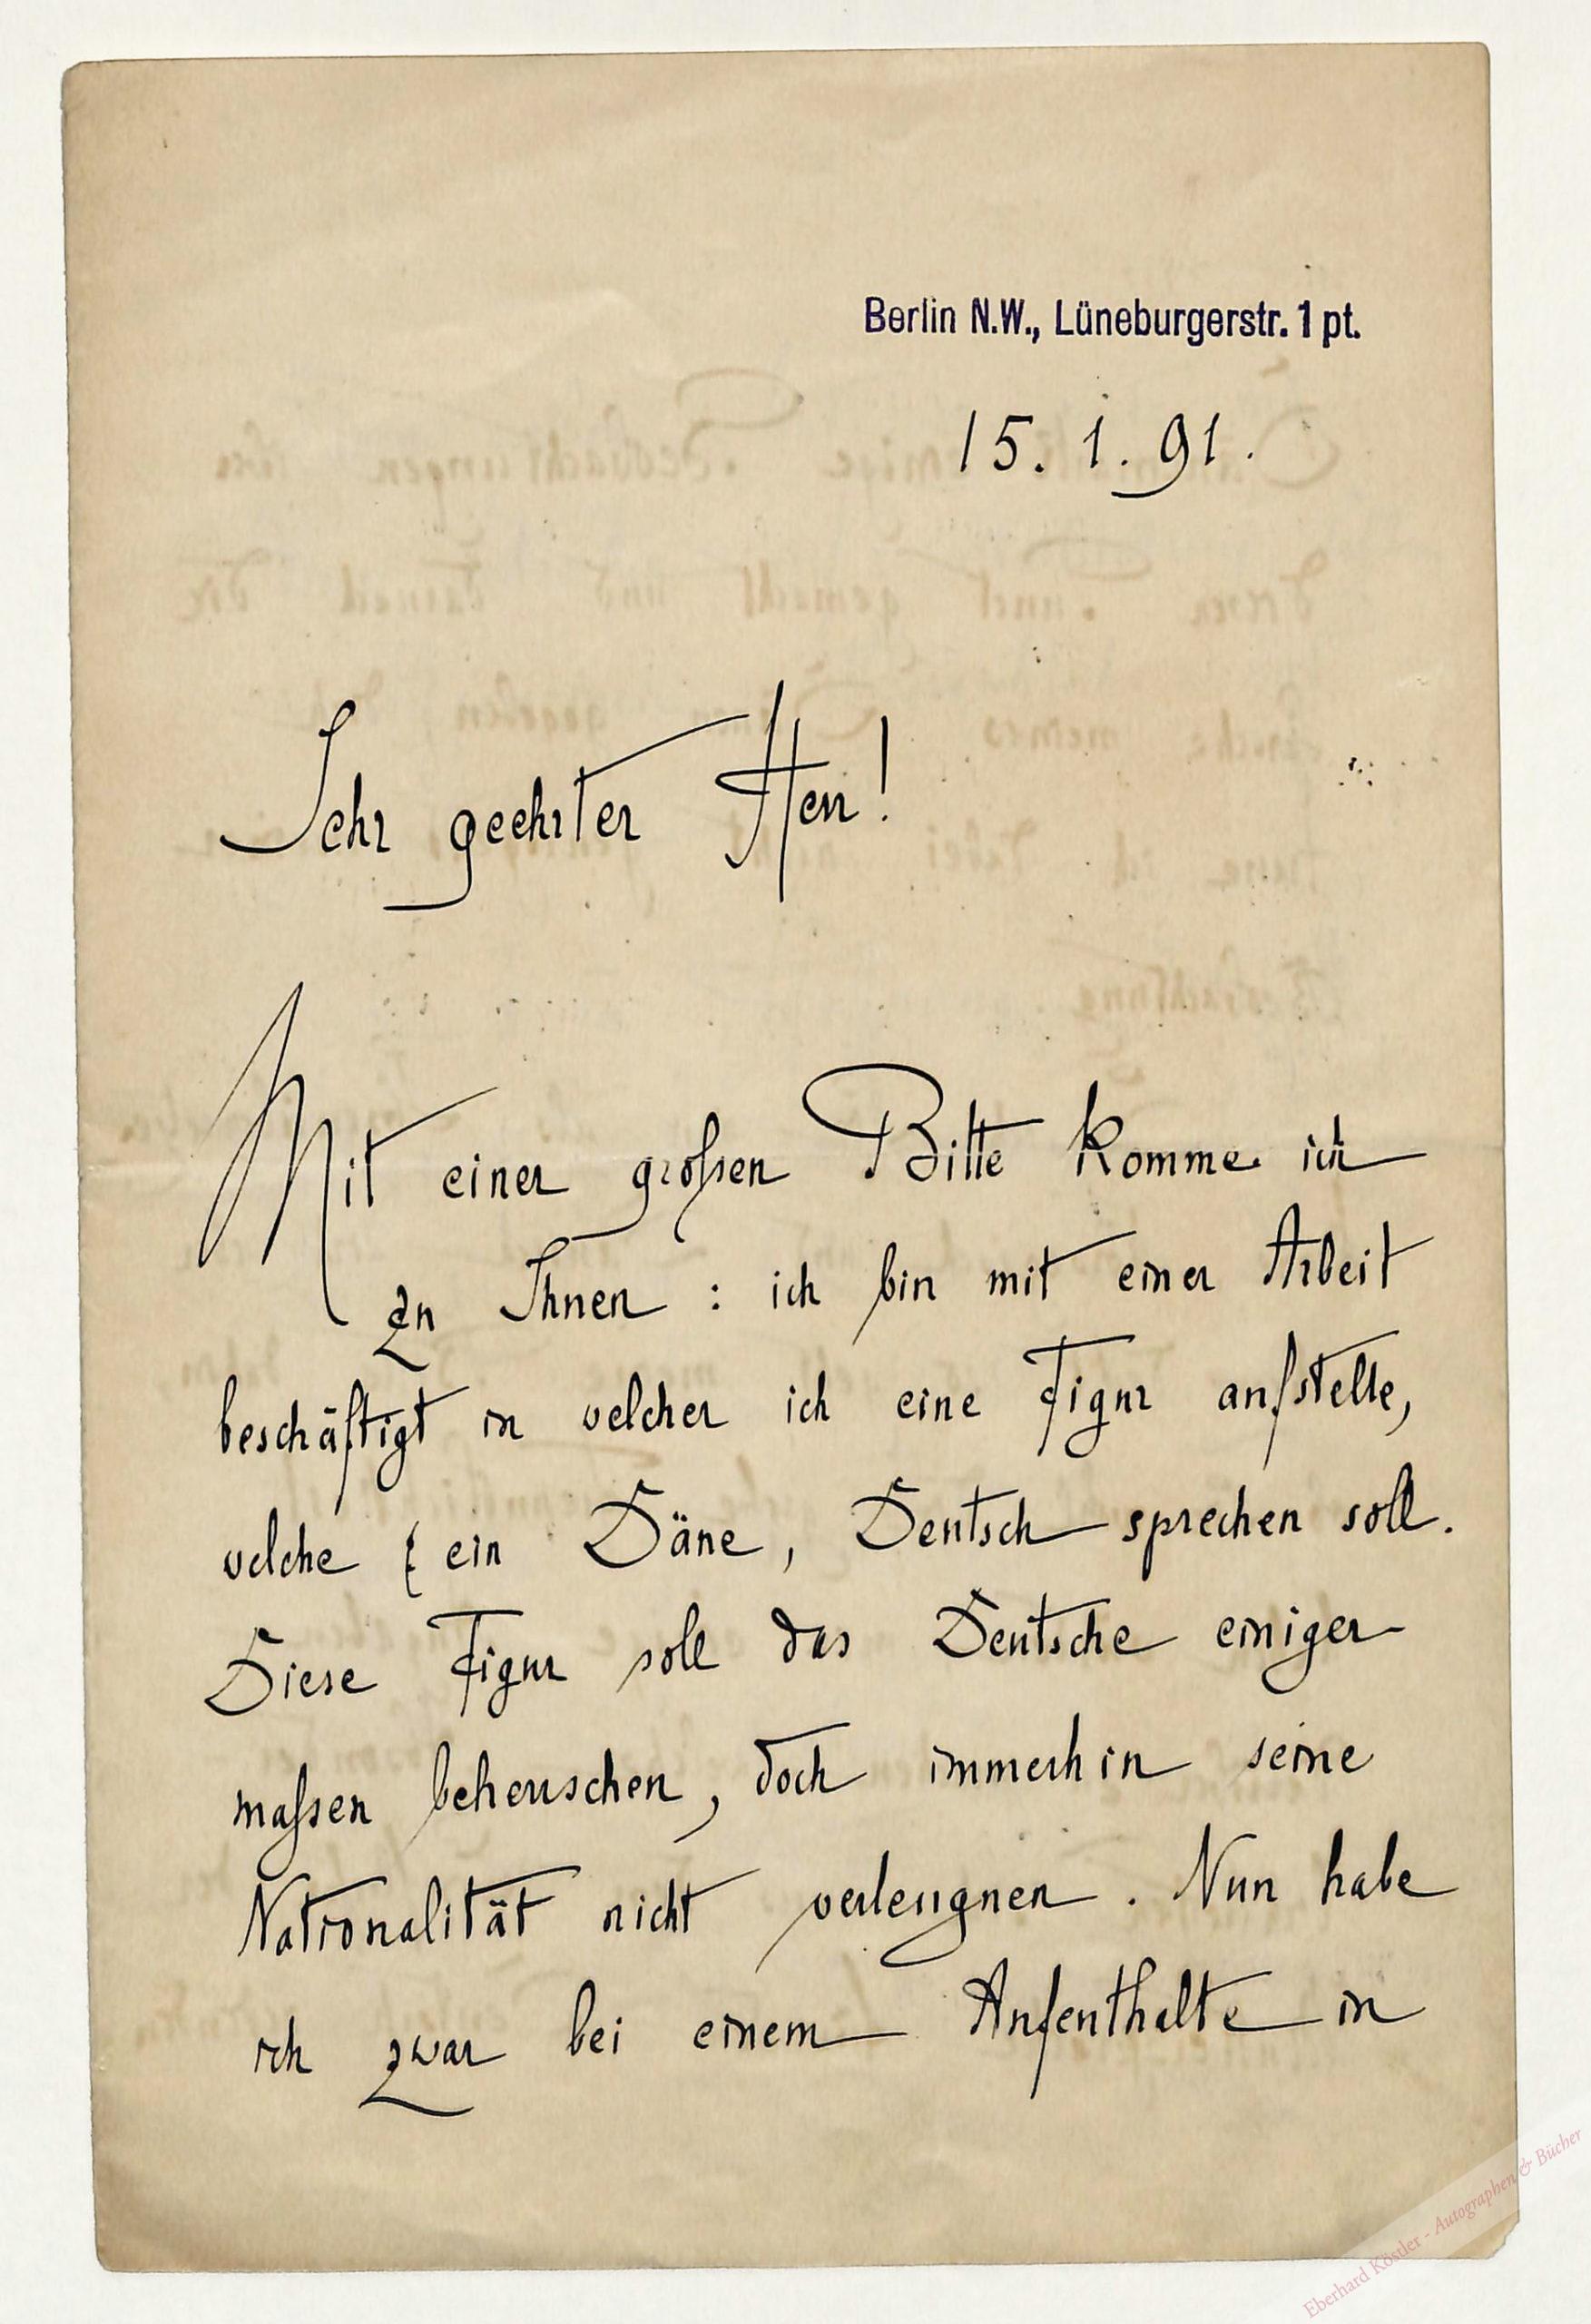 Berlin N.W., Lüneburgerstr. 1 pt.
15. 1. 91.
Sehr geehrter Herr!
Mit einer großen Bitte komme ich
zu Ihnen : ich bin mit einer Arbeit
beschäftigt in welcher ich eine Figur aufstelle,
welche ein Däne, Deutsch sprechen soll.
Diese Figur soll das Deutsche einiger
maßen beherrschen, doch immerhin seine
Nationalität nicht verleugnen. Nun habe
ich zwar bei einem Aufenthalte in
Eberhard Köstler - Autographen & Bücher